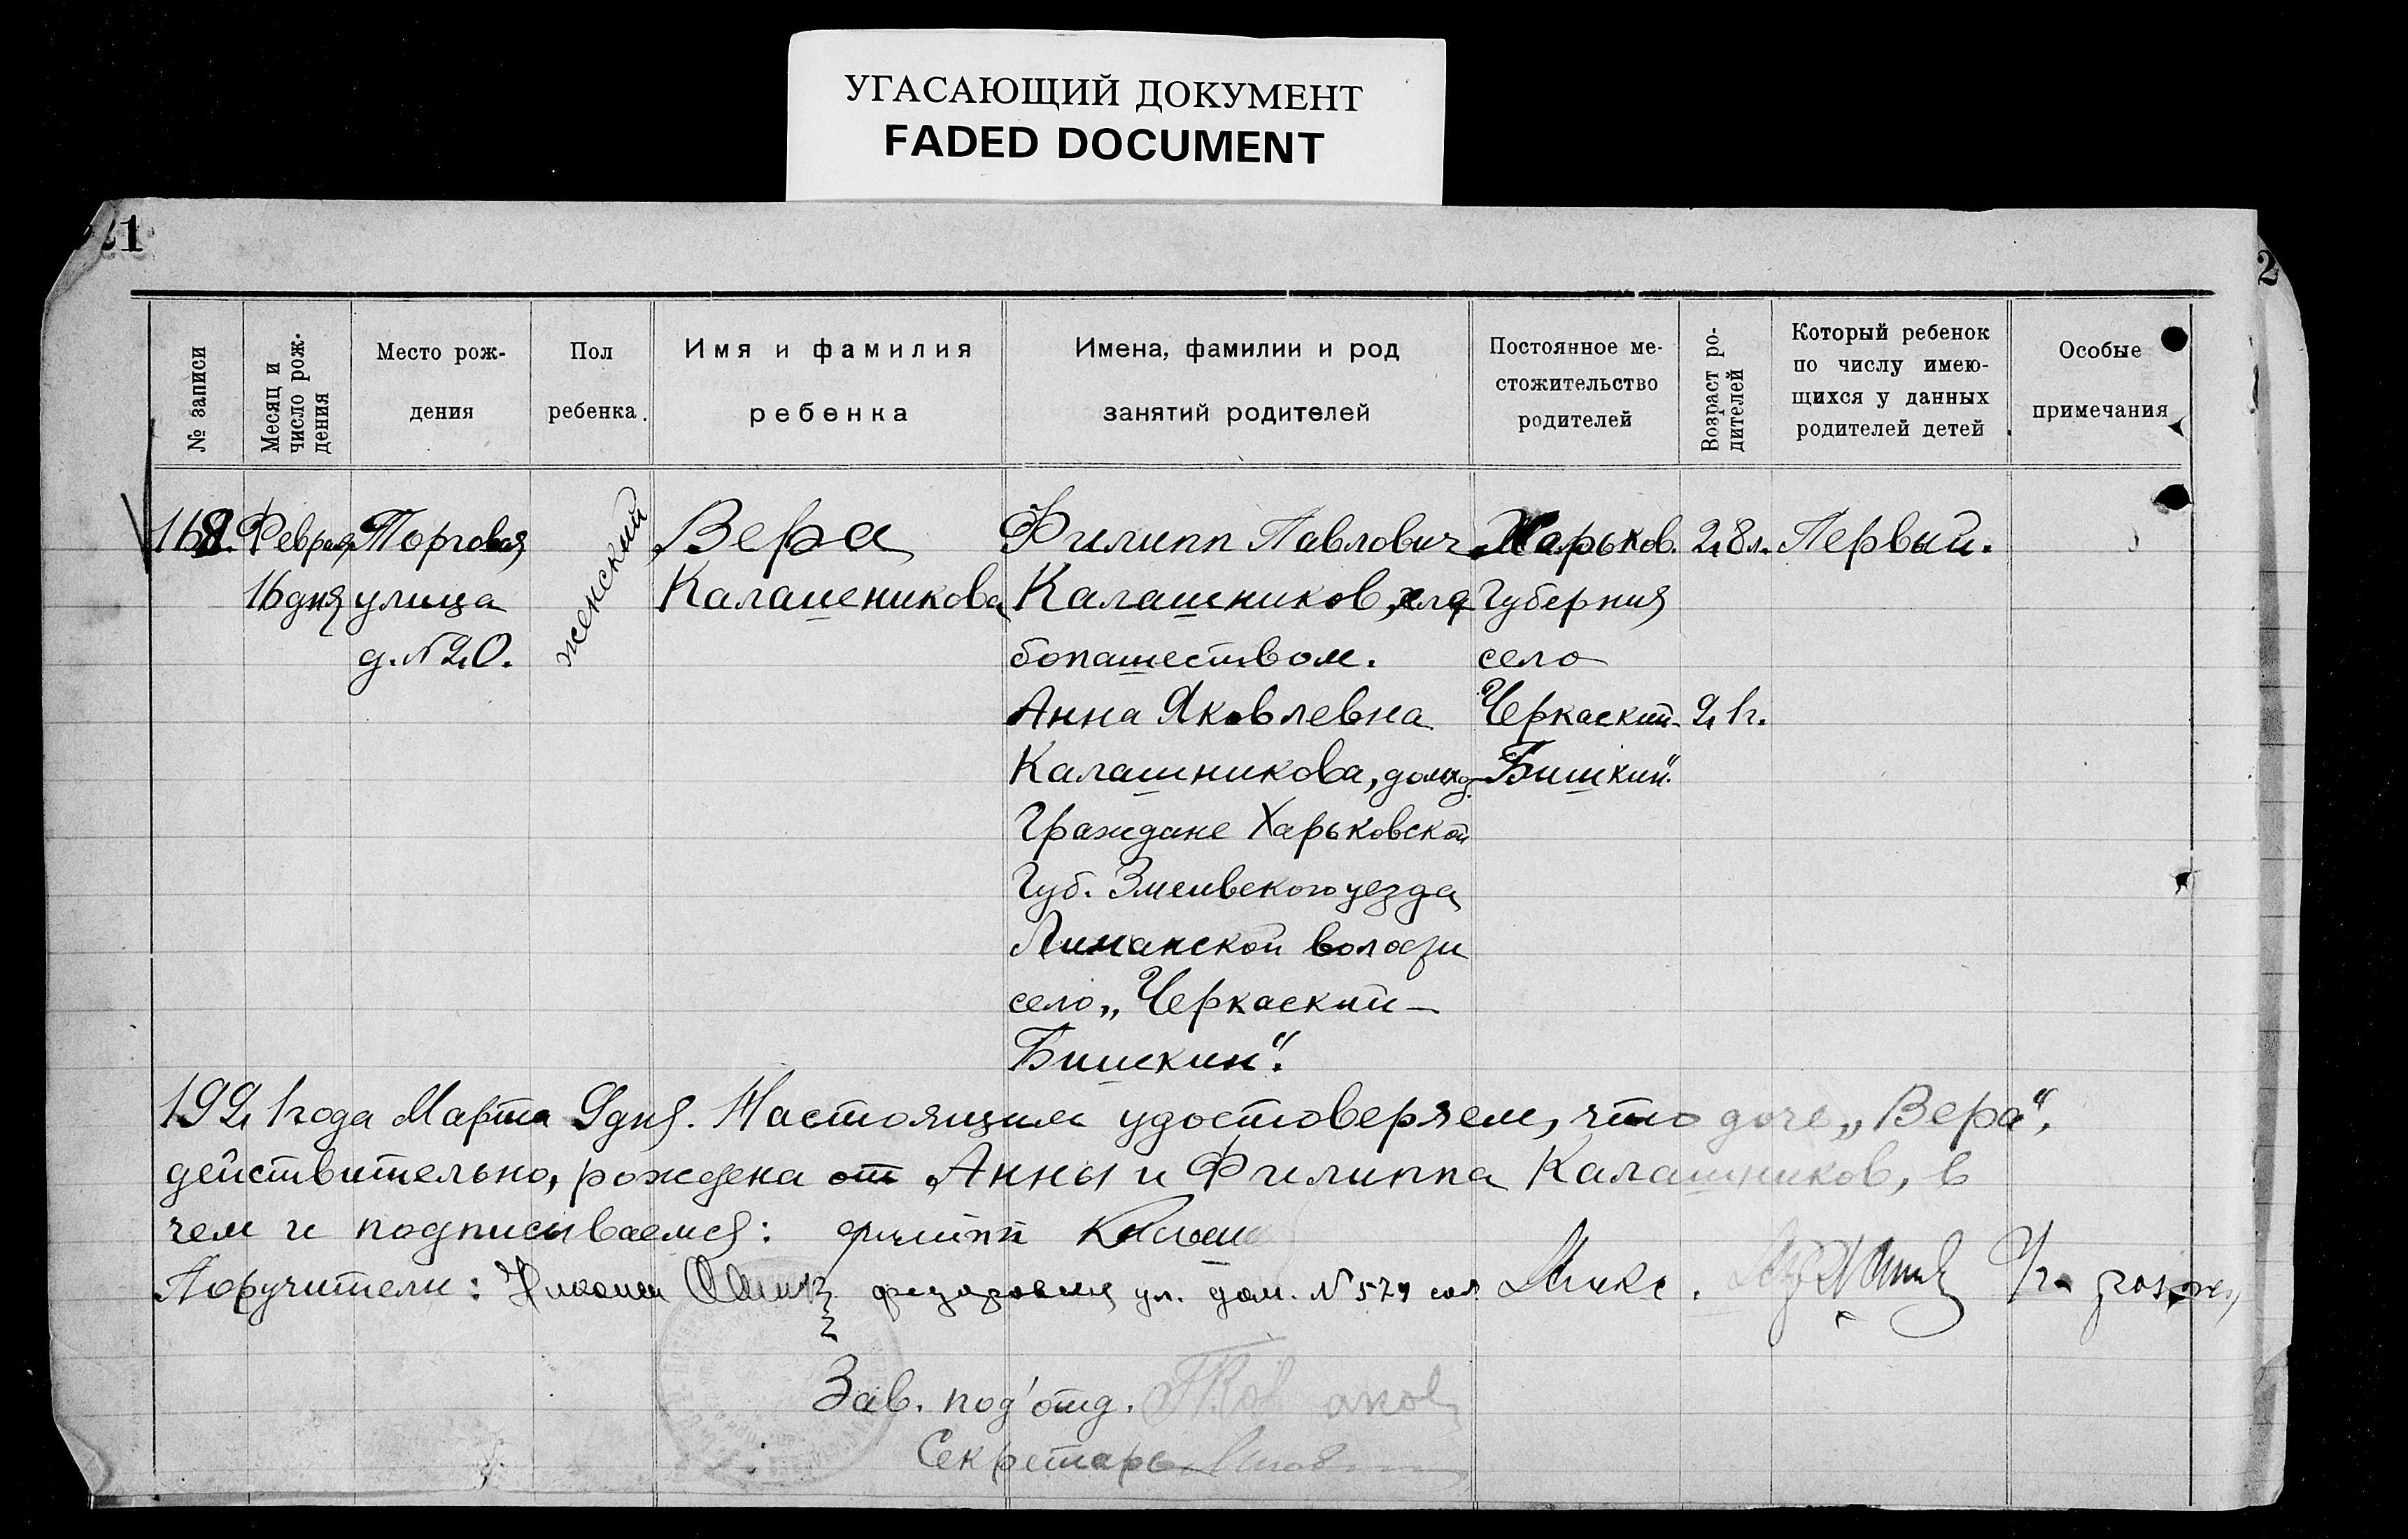 УГАСАЮЩИЙ ДОКУМЕНТ
FADED DOCUMENT
21
2
№ записи
Месяц и
число рож-
дения
Место рож-
дения
Пол
ребенка.
Имя и фамилия
ребенка
Имена, фамилии и род
занятий родителей
Постоянное ме-
стожительство
родителей
Возраст ро-
дителей
Который ребенок
по числу имею-
щихся у данных
родителей детей
Особые
примечания
168.
Февраля
16 дня
Торговая
улица
д. № 20.
женский
Вера
Калашникова
Филипп Павлович
Калашников, хле
бопашеством.
Анна Яковлевна
Калашникова, домхоз.
Граждане Харьковской
Губ. Змеивского уезда
Лиманской волости
село „Черкаский —
Бишкин“.
Харьков.
Губерния
село
Черкаский-
Бишкин“.
28 л.
21 г.
Первый.
1921 года Марта 9 дня. Настоящим удостоверяем, что доче „Вера“,
действительно, рождена от Анны и Филиппа Калашников, в
чем и подписываемся: Филипп
Поручители: ул. дом. № 579
Зав. под'отд.
Секретарь